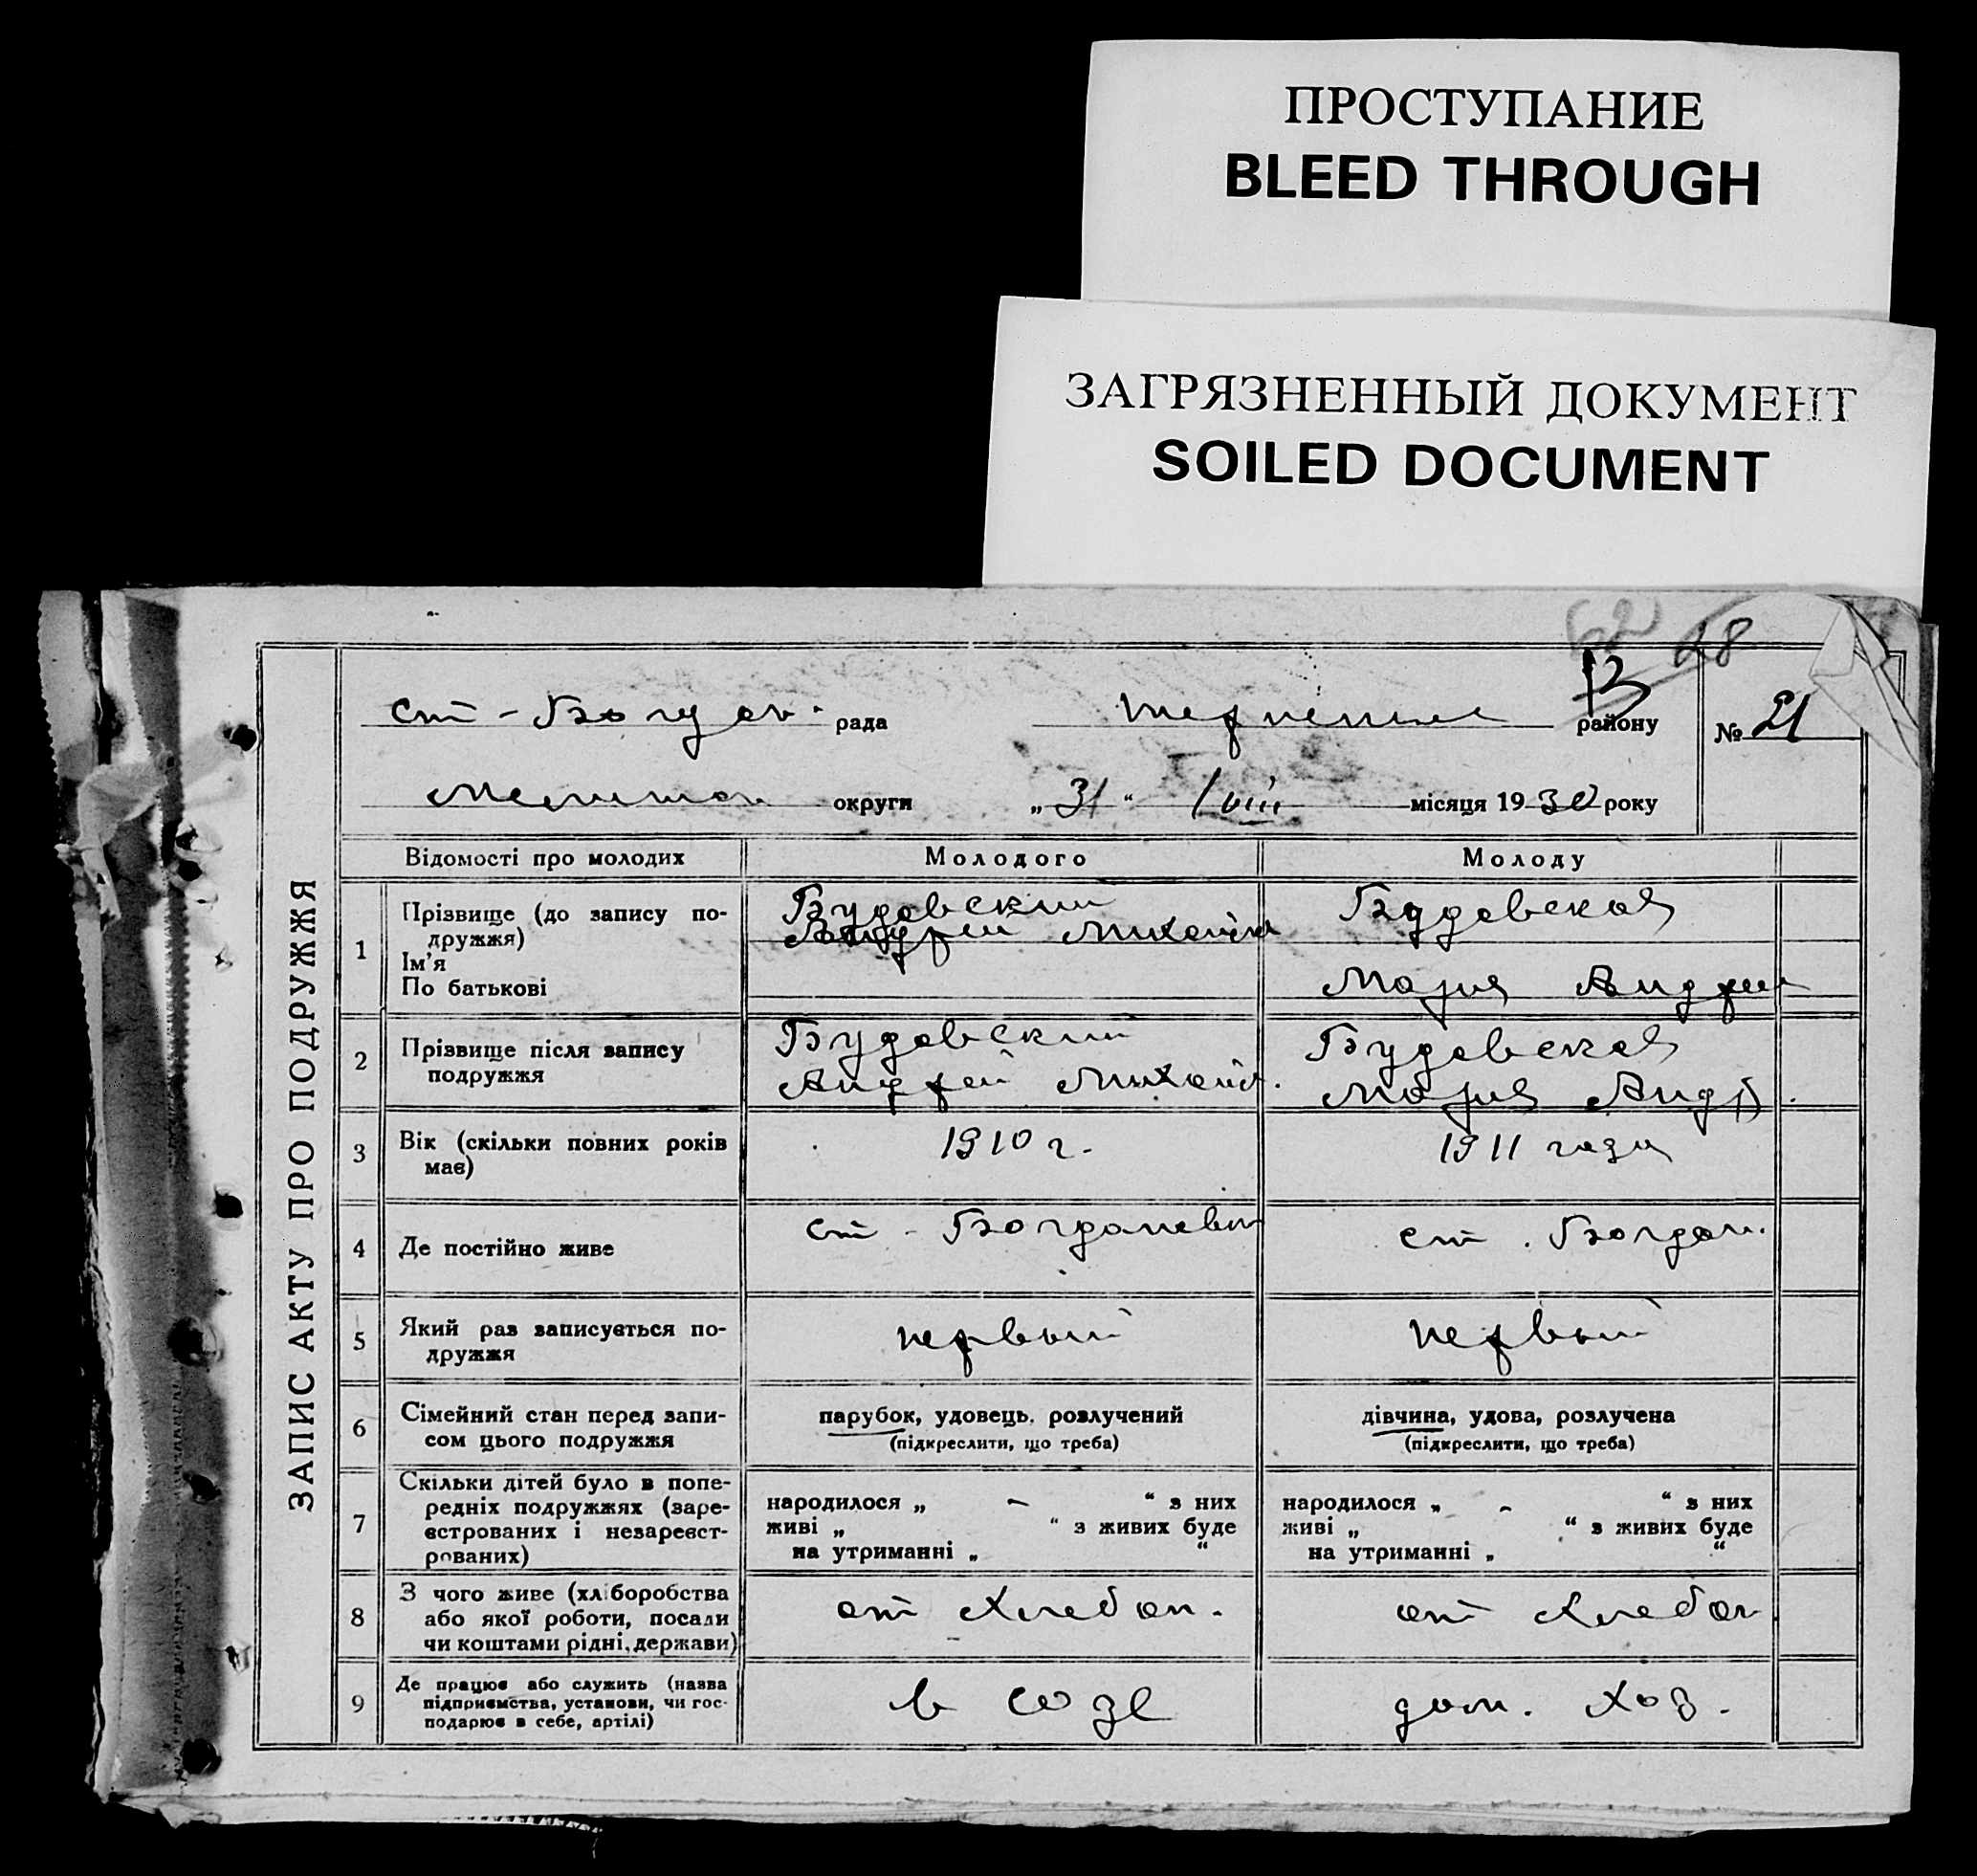 ПРОСТУПАНИЕ
BLEED THROUGH
ЗАГРЯЗНЕННЫЙ ДОКУМЕНТ
SOILED DOCUMENT
62 28
13
ст-Богдан. рада района № 21
Мелитоп округи „31“ VIII місяця 1930 року
ЗАПИС АКТУ ПРО ПОДРУЖЖЯ
Відомості про молодих Молодого Молоду
1 Прізвище (до запису по-
дружжя)
Ім'я
По батькові
Будовский
Андрей Михайл
Будовская
Мария Андрее
2 Прізвище після запису
подружжя
Будовский
Андрей Михайл.
Будовская
Мария Андр.
3 Вік (скільки повних років
має)
1910 г.
1911 года
4 Де постійно живе
ст - Богдановки
ст. Богдан.
5 Який раз записується по-
дружжя
первый
первый
6 Сімейний стан перед запи-
сом цього подружжя
парубок, удовець, розлучений
(підкреслити, що треба)
дівчина, удова, розлучена
(підкреслити, що треба)
7 Скільки дітей було в попе-
редніх подружжях (заре-
єстрованих і незареєст-
рованих)
народилося „ – “ з них
живі „ “ з живих буде
на утриманні „ “
народилося „ – “ з них
живі „ “ з живих буде
на утриманні „ “
8 З чого живе (хліборобства
або якої роботи, посади
чи коштами рідні, держави)
от хлебоп.
от хлебоп
9 Де працює або служить (назва
підприємства, установи, чи гос-
подарює в себе, артілі)
в созе
дом. хоз.